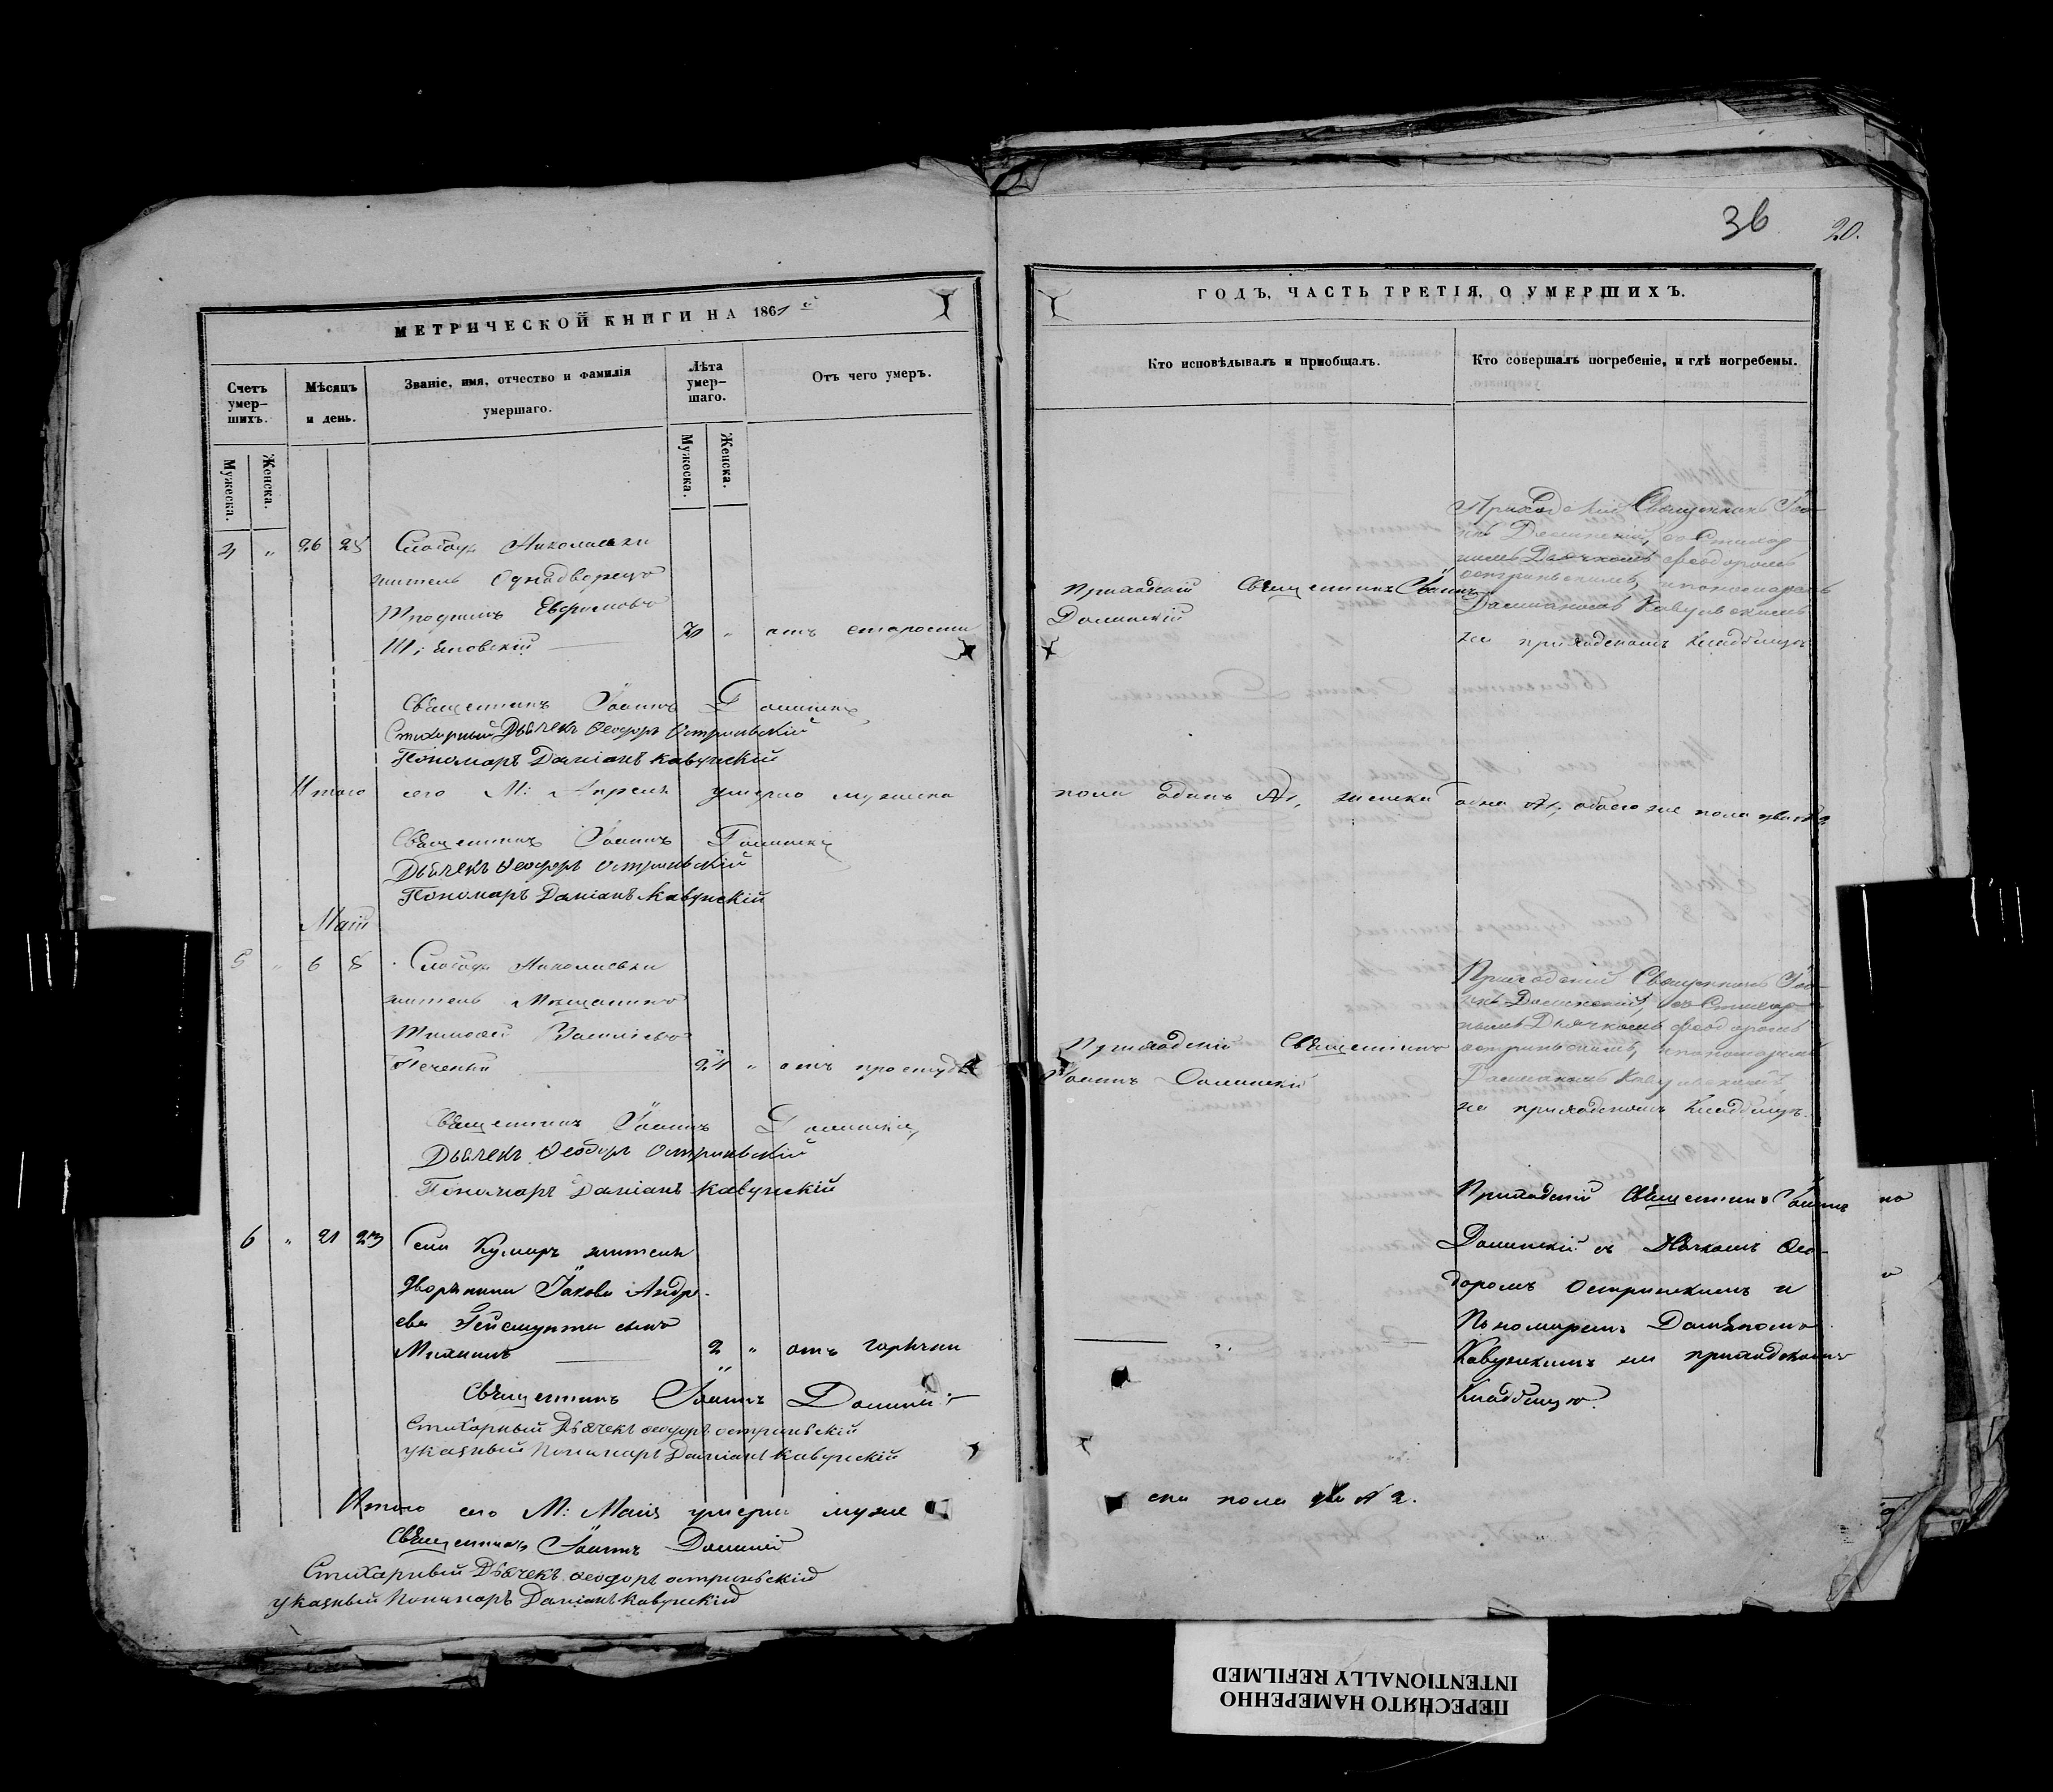 36
20.
МЕТРИЧЕСКОЙ КНИГИ НА 1861 й
Счетъ умер-шихъ.
Мѣсяцъ и день.
Званіе, имя, отчество и фамилія умершаго.
Лѣта умер-шаго.
Отъ чего умеръ.
Мужеска.
Женска.
Мужеска.
Женска.
4 „ 26 28 Слободы Николаевки
житель Однодворецъ
Ефимовъ
70 „ отъ старости
Священникъ Іоаннъ
Стихарный Дьячекъ Ѳеодоръ Остриньскій
Пономарь Даміанъ Кавунскій
Итого сего М: Апрѣля умерло мужеска
Священникъ Іоаннъ
Дьячекъ Ѳеодоръ Остриньскій
Пономарь Даміанъ Кавунскій
Маій
5 „ 6 8 Слободы Николаевки
житель Мѣщанинъ
Тимофей Васильевъ
24 „ отъ простуды
Священникъ Іоаннъ
Дьячекъ Ѳеодоръ Остриньскій
Пономарь Даміанъ Кавунскій
6 „ 21 23 Села житель
дворянина Іакова Андре-
ева сынъ
Михаилъ 2 „ отъ горячки
Священникъ Іоаннъ
Стихарный Дьячекъ Ѳеодоръ Остриньскій
указный Пономарь Даміанъ Кавунскій
Итого сего М: Маія умерло муже
Священникъ Іоаннъ
Стихарный Дьячекъ Ѳеодоръ Остриньскій
указный Пономарь Даміанъ Кавунскій
ГОДЪ, ЧАСТЬ ТРЕТІЯ, О УМЕРШИХЪ.
Кто исповѣдывалъ и пріобщалъ.
Кто совершалъ погребеніе, и гдѣ погребены.
Приходскій Священникъ Іоаннъ
Долинскій
Приходскій Священникъ Іоа-
ннъ Долинскій, со Стихар-
нымъ Дьячкомъ Ѳеодоромъ
Остриньскимъ, и пономаремъ
Даміаномъ Кавунскимъ
на приходскомъ кладбищѣ
пола одинъ №1, женска одна №1, обоего же пола два №2
Приходскій Священникъ
Іоаннъ Долинскій
Приходскій Священникъ Іоа-
ннъ Долинскій, со Стихар-
нымъ Дьячкомъ Ѳеодоромъ
Остриньскимъ, и пономаремъ
Даміаномъ Кавунскимъ
на приходскомъ кладбищѣ.
Приходскій Священникъ Іоаннъ
Долинскій съ Дьячкомъ Ѳео-
доромъ Остриньскимъ и
Пономаремъ Даміяномъ
Кавунскимъ на приходскомъ
Кладбищѣ.
ска пола два №2.
ПЕРЕСНЯТО НАМЕРЕННО
INTENTIONALLY REFILMED